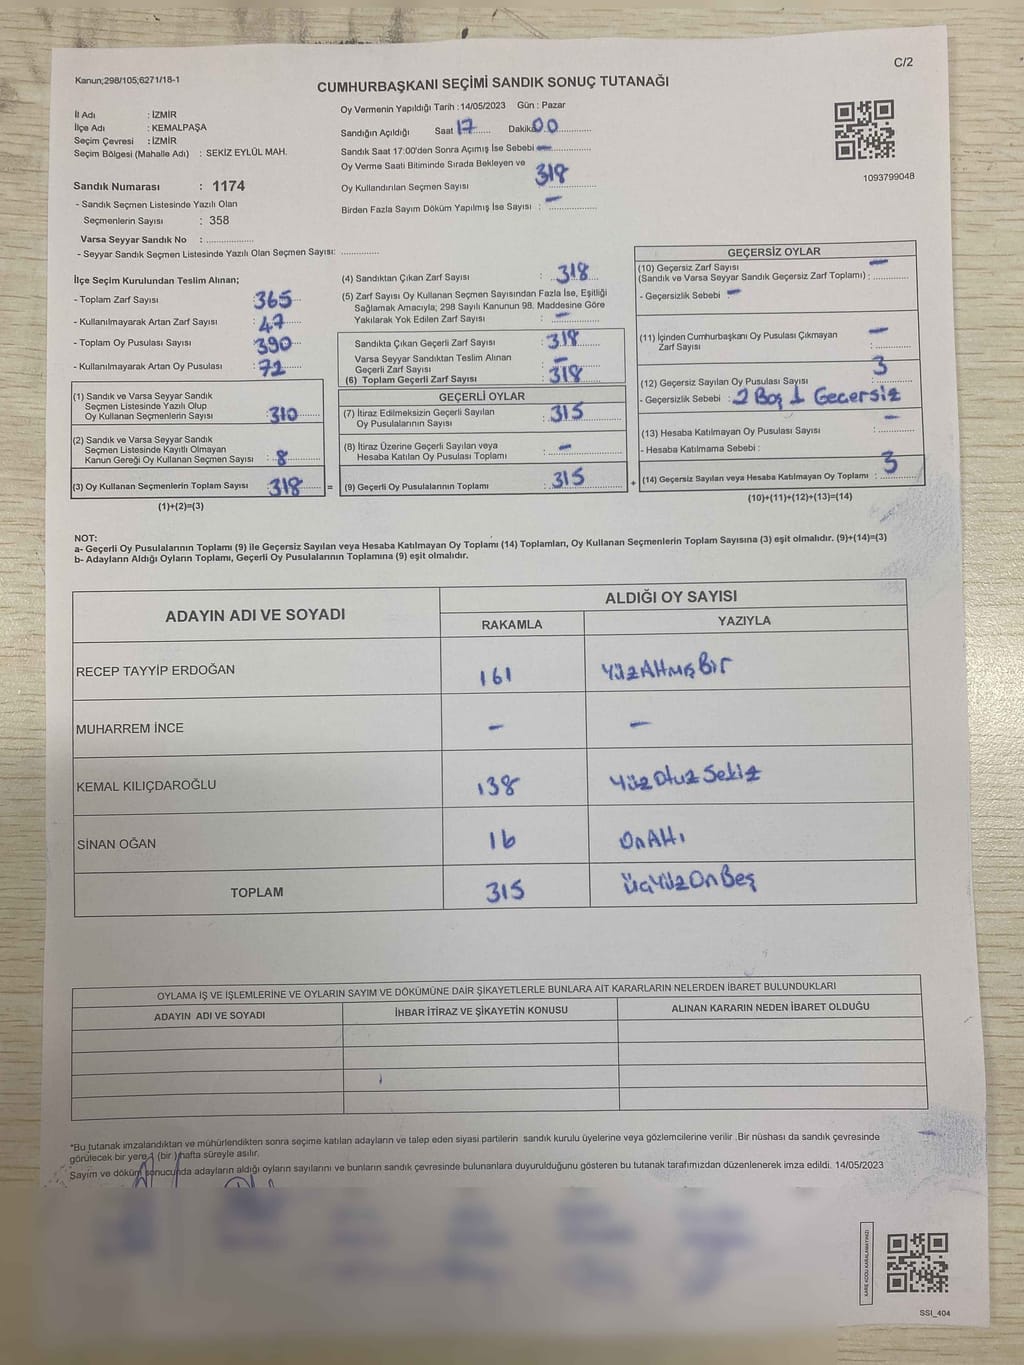 C/2
Kanun;298/105;6271/18-1
CUMHURBAŞKANI SEÇİMİ SANDIK SONUÇ TUTANAĞI
İl Adı : İZMİR
İlçe Adı : KEMALPAŞA
Seçim Çevresi : İZMİR
Seçim Bölgesi (Mahalle Adı) : SEKİZ EYLÜL MAH.
Sandık Numarası : 1174
- Sandık Seçmen Listesinde Yazılı Olan
Seçmenlerin Sayısı : 358
Varsa Seyyar Sandık No : ..................
- Seyyar Sandık Seçmen Listesinde Yazılı Olan Seçmen Sayısı: ..................
Oy Vermenin Yapıldığı Tarih : 14/05/2023 Gün : Pazar
Sandığın Açıldığı Saat 17 Dakika 00
Sandık Saat 17:00'den Sonra Açımış İse Sebebi —
Oy Verme Saati Bitiminde Sırada Bekleyen ve
Oy Kullandırılan Seçmen Sayısı 318
Birden Fazla Sayım Döküm Yapılmış İse Sayısı : —
1093799048
İlçe Seçim Kurulundan Teslim Alınan;
- Toplam Zarf Sayısı : 365
- Kullanılmayarak Artan Zarf Sayısı : 47
- Toplam Oy Pusulası Sayısı : 390
- Kullanılmayarak Artan Oy Pusulası : 72
(1) Sandık ve Varsa Seyyar Sandık
Seçmen Listesinde Yazılı Olup
Oy Kullanan Seçmenlerin Sayısı : 310
(2) Sandık ve Varsa Seyyar Sandık
Seçmen Listesinde Kayıtlı Olmayan
Kanun Gereği Oy Kullanan Seçmen Sayısı : 8
(3) Oy Kullanan Seçmenlerin Toplam Sayısı : 318 =
(1)+(2)=(3)
(4) Sandıktan Çıkan Zarf Sayısı : 318
(5) Zarf Sayısı Oy Kullanan Seçmen Sayısından Fazla İse, Eşitliği
Sağlamak Amacıyla; 298 Sayılı Kanunun 98. Maddesine Göre
Yakılarak Yok Edilen Zarf Sayısı : —
Sandıkta Çıkan Geçerli Zarf Sayısı : 318
Varsa Seyyar Sandıktan Teslim Alınan
Geçerli Zarf Sayısı : —
(6) Toplam Geçerli Zarf Sayısı : 318
GEÇERLİ OYLAR
(7) İtiraz Edilmeksizin Geçerli Sayılan
Oy Pusulalarının Sayısı : 315
(8) İtiraz Üzerine Geçerli Sayılan veya
Hesaba Katılan Oy Pusulası Toplamı : —
(9) Geçerli Oy Pusulalarının Toplamı : 315 +
GEÇERSİZ OYLAR
(10) Geçersiz Zarf Sayısı —
(Sandık ve Varsa Seyyar Sandık Geçersiz Zarf Toplamı) : ............
- Geçersizlik Sebebi : —
(11) İçinden Cumhurbaşkanı Oy Pusulası Çıkmayan
Zarf Sayısı : —
(12) Geçersiz Sayılan Oy Pusulası Sayısı : 3
- Geçersizlik Sebebi : 2 Boş 1 Gecersiz
(13) Hesaba Katılmayan Oy Pusulası Sayısı : —
- Hesaba Katılmama Sebebi :
(14) Geçersiz Sayılan veya Hesaba Katılmayan Oy Toplamı : 3
(10)+(11)+(12)+(13)=(14)
NOT:
a- Geçerli Oy Pusulalarının Toplamı (9) ile Geçersiz Sayılan veya Hesaba Katılmayan Oy Toplamı (14) Toplamları, Oy Kullanan Seçmenlerin Toplam Sayısına (3) eşit olmalıdır. (9)+(14)=(3)
b- Adayların Aldığı Oyların Toplamı, Geçerli Oy Pusulalarının Toplamına (9) eşit olmalıdır.
ADAYIN ADI VE SOYADI
ALDIĞI OY SAYISI
RAKAMLA YAZIYLA
RECEP TAYYİP ERDOĞAN 161 YüzAltmışBir
MUHARREM İNCE — —
KEMAL KILIÇDAROĞLU 138 YüzOtuzSekiz
SİNAN OĞAN 16 OnAltı
TOPLAM 315 ÜçYüzOnBeş
OYLAMA İŞ VE İŞLEMLERİNE VE OYLARIN SAYIM VE DÖKÜMÜNE DAİR ŞİKAYETLERLE BUNLARA AİT KARARLARIN NELERDEN İBARET BULUNDUKLARI
ADAYIN ADI VE SOYADI İHBAR İTİRAZ VE ŞİKAYETİN KONUSU ALINAN KARARIN NEDEN İBARET OLDUĞU
*Bu tutanak imzalandıktan ve mühürlendikten sonra seçime katılan adayların ve talep eden siyasi partilerin sandık kurulu üyelerine veya gözlemcilerine verilir .Bir nüshası da sandık çevresinde
görülecek bir yere 1 (bir ) hafta süreyle asılır.
Sayım ve döküm sonucunda adayların aldığı oyların sayılarını ve bunların sandık çevresinde bulunanlara duyurulduğunu gösteren bu tutanak tarafımızdan düzenlenerek imza edildi. 14/05/2023
KARE KODU KARALAMAYINIZ!
SSI_404